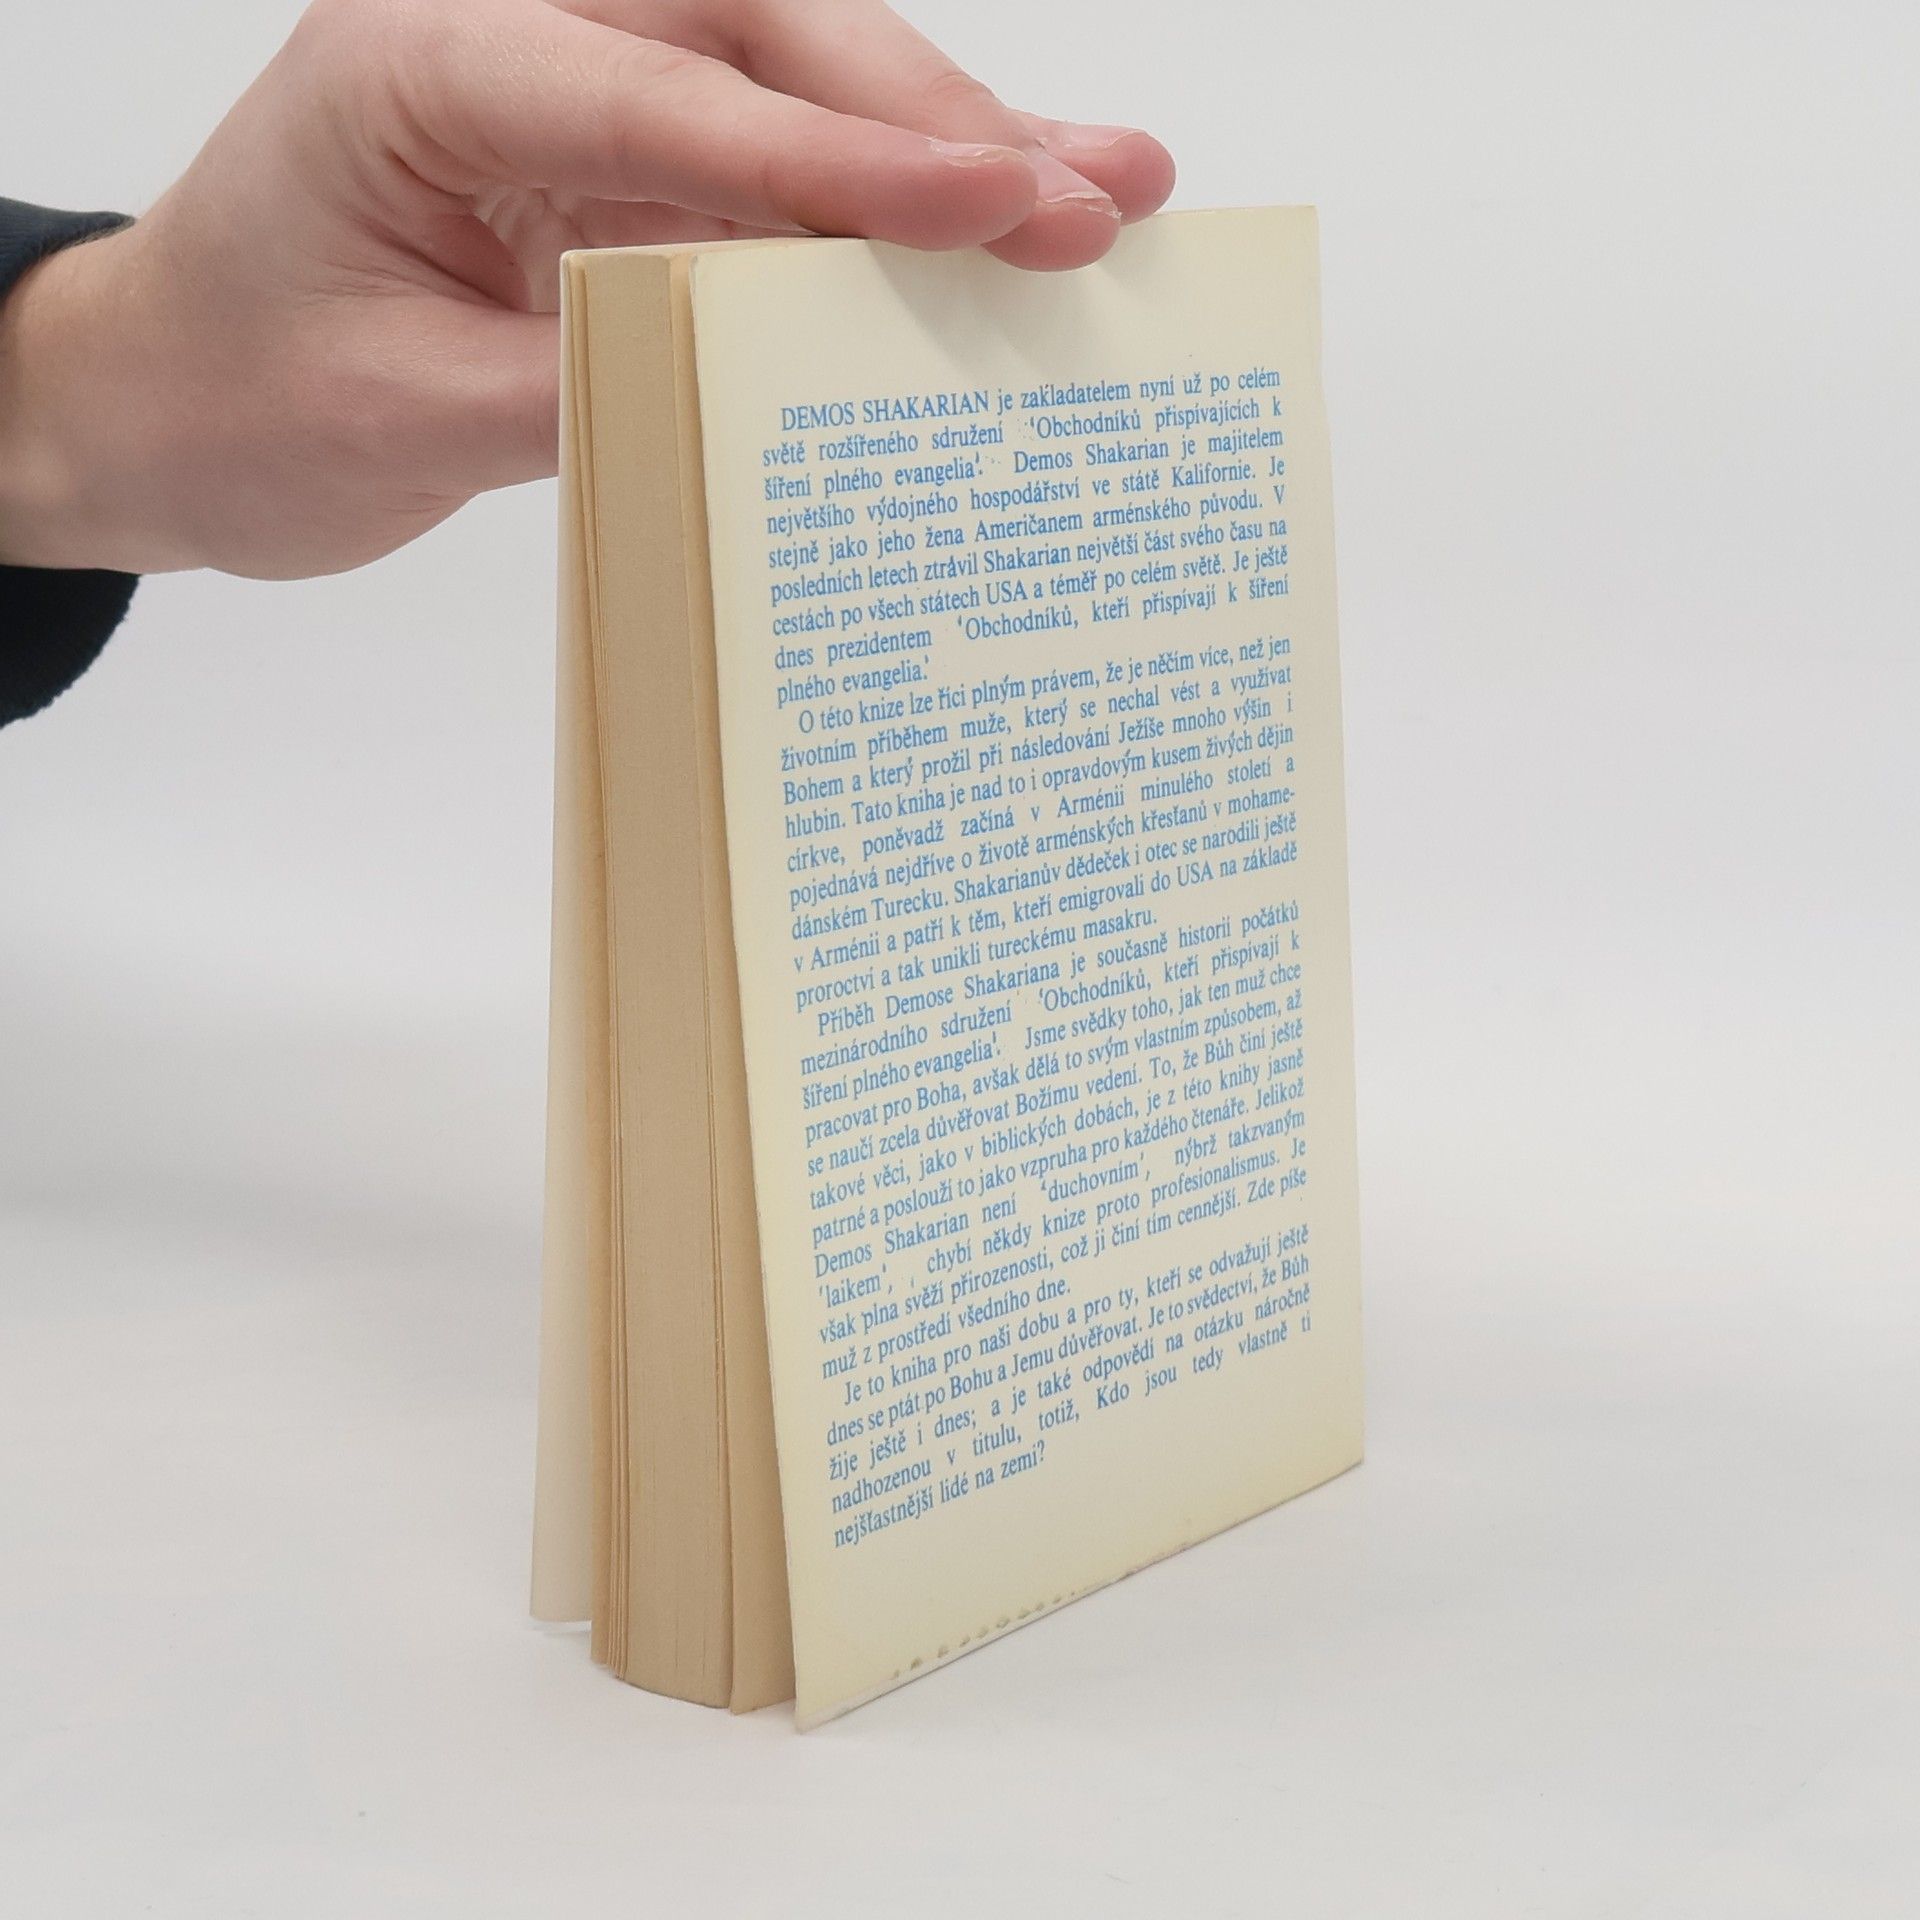 DEMOS SHAKARIAN je zakladatelem nyní už po celém
světě rozšířeného sdružení 'Obchodníků přispívajících k
šíření plného evangelia'. Demos Shakarian je majitelem
největšího výdojného hospodářství ve státě Kalifornie. Je
stejně jako jeho žena Američanem arménského původu. V
posledních letech ztrávil Shakarian největší část svého času na
cestách po všech státech USA a téměř po celém světě. Je ještě
dnes prezidentem 'Obchodníků, kteří přispívají k šíření
plného evangelia.'
O této knize lze říci plným právem, že je něčím více, než jen
životním příběhem muže, který se nechal vést a využívat
Bohem a který prožil při následování Ježíše mnoho výšin i
hlubin. Tato kniha je nad to i opravdovým kusem živých dějin
církve, poněvadž začíná v Arménii minulého století a
pojednává nejdříve o životě arménských křesťanů v mohame-
dánském Turecku. Shakarianův dědeček i otec se narodili ještě
v Arménii a patří k těm, kteří emigrovali do USA na základě
proroctví a tak unikli tureckému masakru.
Příběh Demose Shakariana je současně historií počátků
mezinárodního sdružení 'Obchodníků, kteří přispívají k
šíření plného evangelia'. Jsme svědky toho, jak ten muž chce
pracovat pro Boha, avšak dělá to svým vlastním způsobem, až
se naučí zcela důvěřovat Božímu vedení. To, že Bůh činí ještě
takové věci, jako v biblických dobách, je z této knihy jasně
patrné a poslouží to jako vzpruha pro každého čtenáře. Jelikož
Demos Shakarian není 'duchovním', nýbrž takzvaným
'laikem', chybí někdy knize proto profesionalismus. Je
však plna svěží přirozenosti, což ji činí tím cennější. Zde píše
muž z prostředí všedního dne.
Je to kniha pro naši dobu a pro ty, kteří se odvažují ještě
dnes se ptát po Bohu a Jemu důvěřovat. Je to svědectví, že Bůh
žije ještě i dnes; a je také odpovědí na otázku náročně
nadhozenou v titulu, totiž, Kdo jsou tedy vlastně ti
nejšťastnější lidé na zemi?